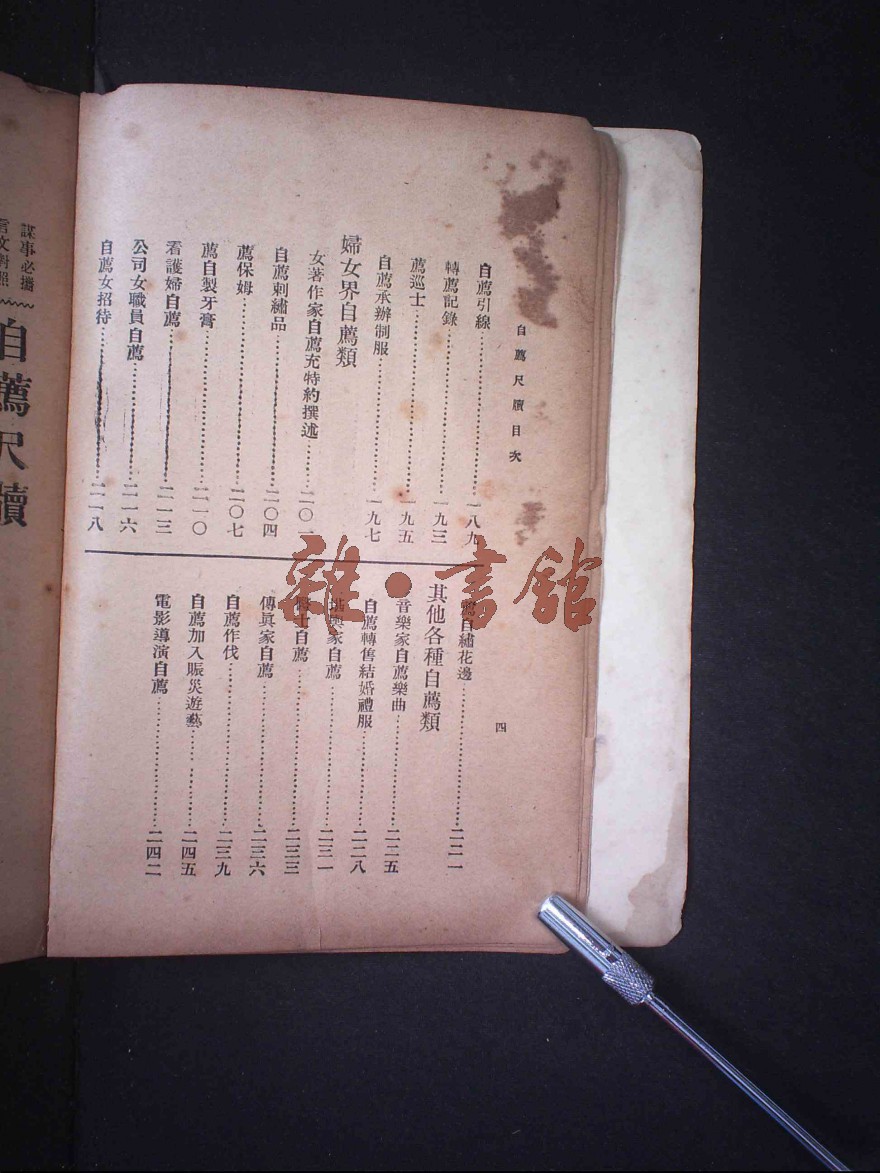 自薦尺牘目次
四
自薦引線⋯⋯一八九
轉薦記錄⋯⋯一九三
薦巡士⋯⋯一九五
自薦承辦制服⋯⋯一九七
婦女界自薦類
女著作家自薦充特約撰述⋯⋯二〇一
自薦刺繡品⋯⋯二〇四
薦保姆⋯⋯二〇七
薦自製牙膏⋯⋯二一〇
看護婦自薦⋯⋯二一三
公司女職員自薦⋯⋯二一六
自薦女招待⋯⋯二一八
薦自繡花邊⋯⋯二二一
其他各種自薦類
音樂家自薦樂曲⋯⋯二二五
自薦轉售結婚禮服⋯⋯二二八
堪輿家自薦⋯⋯二三一
士自薦⋯⋯二三三
傳真家自薦⋯⋯二三六
自薦作伐⋯⋯二三九
自薦加入賑災遊藝⋯⋯二四五
電影導演自薦⋯⋯二四二
謀事必攜
言文對照
自薦尺牘
雜·書館